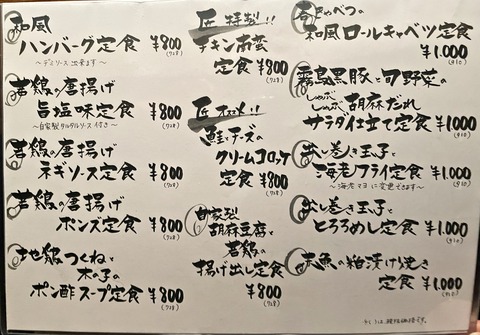 和風
ハンバーグ定食 ¥800
〜デミソース出来ます〜 (728)
若鶏の唐揚げ
旨塩味定食 ¥800
〜自家製タルタルソース付き〜 (728)
若鶏の唐揚げ
ネギソース定食 ¥800
(728)
若鶏の唐揚げ
ポンズ定食 ¥800
(728)
地鶏つくねと
木の子の
ポン酢スープ定食 ¥800
(728)
匠特製!!
チキン南蛮
定食 ¥800
(728)
匠オススメ!!
鮭とチーズの
クリームコロッケ
定食 ¥800
(728)
自家製
胡麻豆腐と
若鶏の
揚げ出し定食
¥800
(728)
春キャベツの
和風ロールキャベツ定食
¥1,000
(910)
霧島黒豚と旬野菜の
しゃぶしゃぶ胡麻だれ
サラダ仕立て定食 ¥1,000
(910)
出し巻き玉子と
海老フライ定食 ¥1,000
〜海老マヨに変更できます〜 (910)
出し巻き玉子と
とろろめし定食 ¥1,000
(910)
赤魚の粕漬け焼き
定食 ¥1,000
(910)